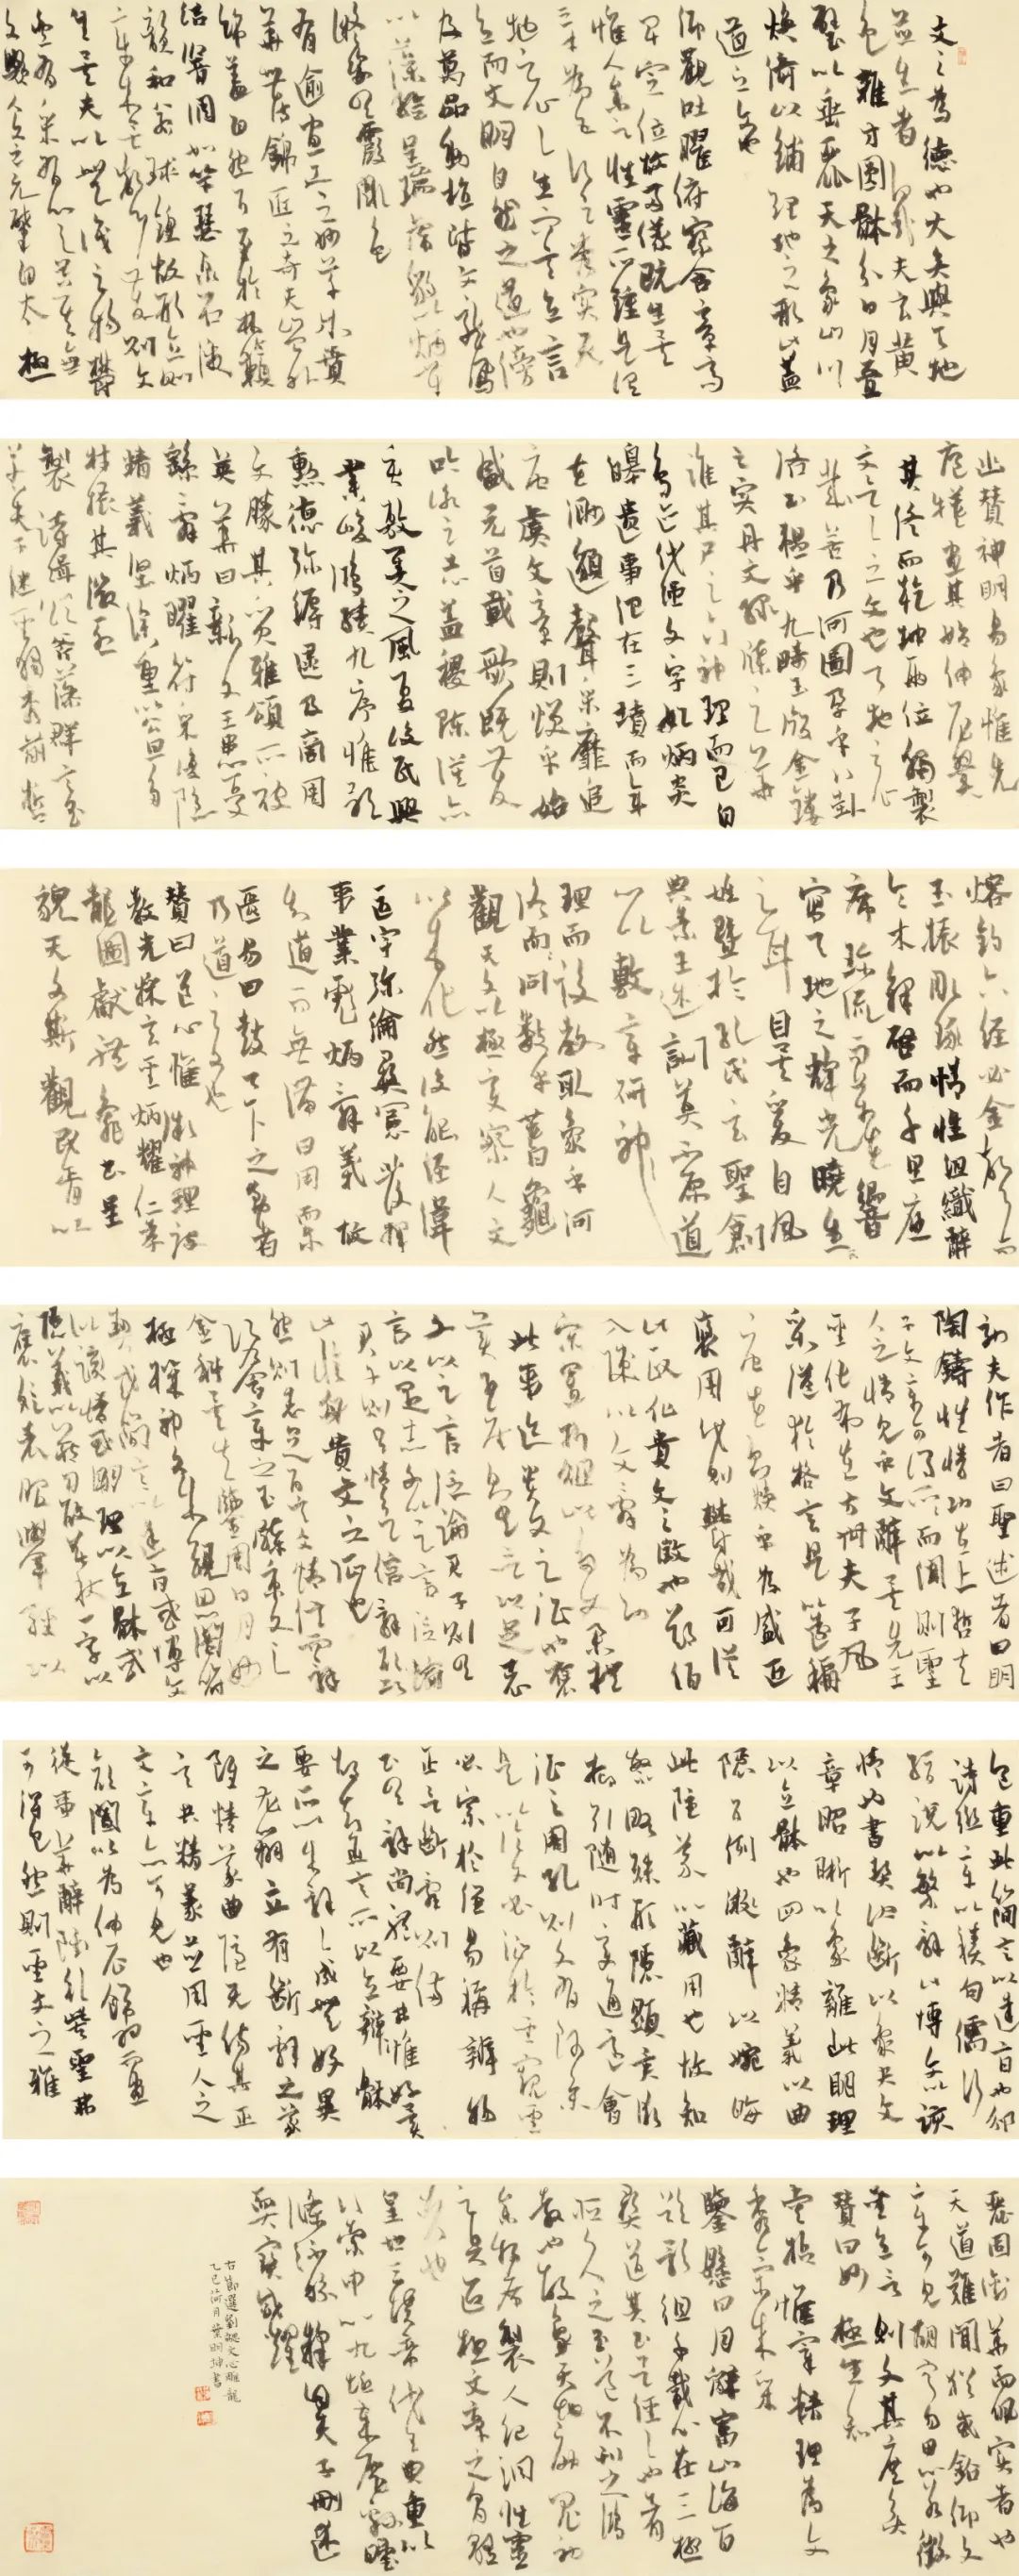 文之為德也大矣與天地
並生者何哉夫玄黃
色雜方圓體分日月疊
璧以垂麗天之象山川
煥綺以鋪理地之形此蓋
道之文也
仰觀吐曜俯察含章高
卑定位故兩儀既生矣
惟人參之性靈所鍾是謂
三才為五行之秀實天
地之心心生而言立言
立而文明自然之道也傍
及萬品動植皆文龍鳳
以藻繪呈瑞虎豹以炳蔚
凝姿雲霞雕色
有逾畫工之妙草木賁
華無待錦匠之奇夫豈外
飾蓋自然耳至於林籟
結響調如竽瑟泉石激
韻和若球鍠故形立則
章成矣聲發則文
生矣夫以無識之物鬱
然有采有心之器其無
文歟人文之元肇自太極
幽贊神明易象惟先
庖犧畫其始仲尼翼
其終而乾坤兩位獨製
文言言之文也天地之心
哉若乃河圖孕乎八卦
洛書韞乎九疇玉版金鏤
之實丹文綠牒之華
誰其尸之亦神理而已自
鳥跡代繩文字始炳炎
皞遺事紀在三墳而年
世渺邈聲采靡追
唐虞文章則煥乎始
盛元首載歌既發
吟詠之志益稷陳謨亦
垂敷奏之風夏后氏興
業峻鴻績九序惟歌
勳德彌縟逮及商周
文勝其質雅頌所被
英華曰新文王患憂
繇辭炳曜符采複隱
精義堅深重以公旦多
材振其徽烈
製詩緝頌斧藻群言至
若夫子繼聖獨秀前哲
熔鈞六經必金聲而
玉振雕琢情性組織辭
令木鐸啟而千里應
席珍流而萬世響
寫天地之輝光曉生民
之耳目矣爰自風
姓暨於孔氏玄聖創
典素王述訓莫不原道
心以敷章研神
理而設教取象乎河
洛而問數乎蓍龜
觀天文以極變察人文
以成化然後能經緯
區宇彌綸彝憲發揮
事業彪炳辭義故
知道而無滯日用而不
匱易曰鼓天下之動者
乃道之文也
贊曰道心惟微神理設
教光採玄聖炳耀仁孝
龍圖獻體龜書呈
貌天文斯觀民胥以
效夫作者曰聖述者曰明
陶鑄性情功在上哲夫
子文章可得而聞則聖
人之情見乎文辭矣先王
聖化布在方冊夫子風
采溢於格言是以遠稱
唐世則煥乎為盛近
褒周代則鬱哉可從
此政化貴文之徵也鄭伯
入陳以文辭為功
宋置折俎以多文舉禮
此事跡貴文之征也褒
美子產則云言以足志
文以足言泛論君子則云
言以足志文以足言泛論
君子則云情欲信辭欲巧
此修身貴文之征也
然則志足而言文情信而辭
巧乃含章之玉牒秉文之
金科矣夫鑒周日月妙
極機神文成規矩思合符
契或簡言以達旨或博文
以該情或明理以立體或
隱義以藏用故春秋一字以
褒貶喪服舉輕以
包重此簡言以達旨也邠
詩聯章以積句儒行
縟說以繁辭此博文以該
情也書契決斷以象夬文
章昭晰以象離此明理
以立體也四象精義以曲
隱五例微辭以婉晦
此隱義以藏用也故知
繁略殊形隱顯異術
抑引隨時變通適會
征之周孔則文有師矣
是以論文必征於聖窺聖
必宗於經易稱辨物
正言斷辭則備
書云辭尚體要弗惟好異
故知正言所以立辯體
要所以成辭辭成無好異
之尤辯立有斷辭之義
雖精義曲隱無傷其正
言共精義並用聖人之
文章亦可見也
顏闔以為仲尼飾羽而畫
從事華辭雖欲訾聖弗
可得已然則聖文之雅
麗固銜華而佩實者也
天道難聞猶或鑽仰文
章可見胡寧勿思若徵
聖立言則文其庶矣
贊曰妙極生知
睿哲惟宰精理為文
秀氣成采
鑒懸日月辭富山海百
齡影徂千載心在三極
彝道其書言經經也者
恆久之至道不刊之鴻
教也故象天地效鬼神
參物序製人紀洞性靈
之奧區極文章之骨髓
者也
皇世三墳帝代五典重以
八索申以九丘歲歷綿曖
條流紛糅自夫子刪述
寶咸耀
右節選劉勰文心雕龍
乙巳荷月葉明坤書